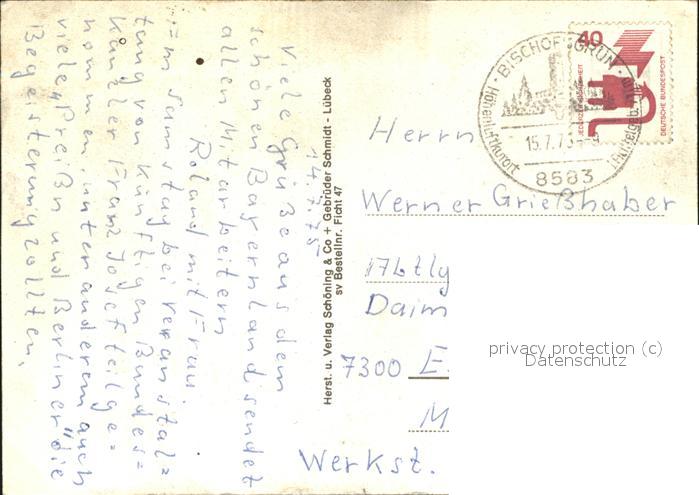 14.7.75
Viele Grüße aus dem
schönen Bayernland sendet
allen Mitarbeitern
Roland mit Frau.
Am Samstag bei Veranstal=
tung von künftigen Bundes=
kanzler Franz Josef teilge=
nommen, unter anderem auch
viele „Preißn und Berliner" die
Begeisterung zollten.
Herst. u. Verlag Schöning & Co + Gebrüder Schmidt - Lübeck
sv Bestellnr. Ficht 47
BISCHOFSGRÜN
Höhenluftkurort
15.7.75-9
8583
40
JEDERZEIT SICHERHEIT
DEUTSCHE BUNDESPOST
Herrn
Werner Grießhaber
Daim
7300 E
M
Werkst.
privacy protection (c)
Datenschutz